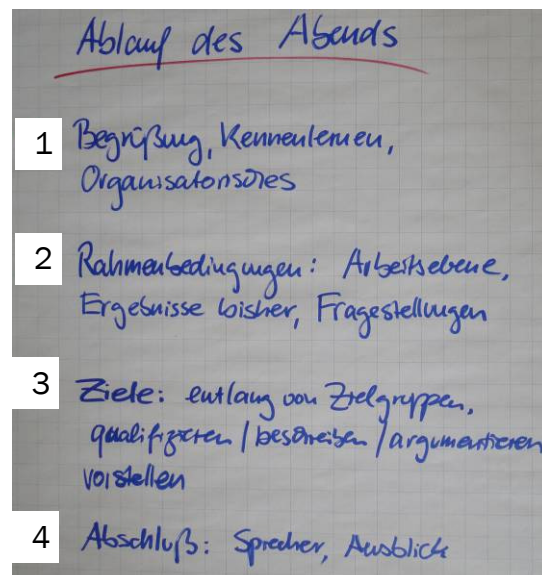 Ablauf des Abends
1 Begrüßung, Kennenlernen,
Organisatorisches
2 Rahmenbedingungen: Arbeitsebene,
Ergebnisse bisher, Fragestellungen
3 Ziele: entlang von Zielgruppen,
qualifizieren / beschreiben / argumentieren
vorstellen
4 Abschluß: Sprecher, Ausblick